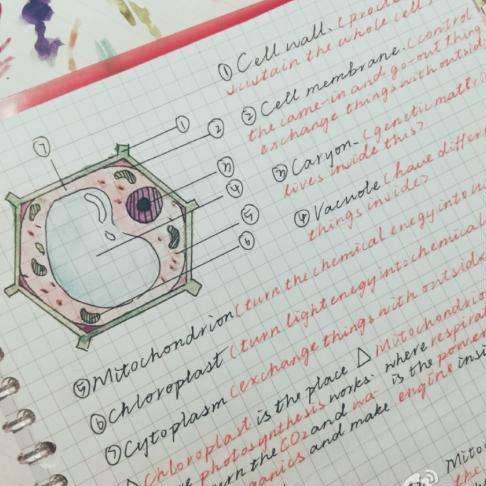 ① Cell wall. (
sustain the whole cell
② Cell membrane. (control
the came-in and go-out thing
exchange things with outside
③ Caryon. (genetic mattri
lives inside this)
④ Vacuole (have differ
things inside)
⑤ Mitochondrion (turn the chemical enegy into
⑥ Chloroplast (turn light enegy into chemical
⑦ Cytoplasm (exchange things with outside
△ Chloroplast is the place △ Mitochondrio
photosynthesis works. where respirat
turn the CO2 and wa- is the power
ganics and make engine insi
Mito
the
⑦
①
②
③
④
⑤
⑥